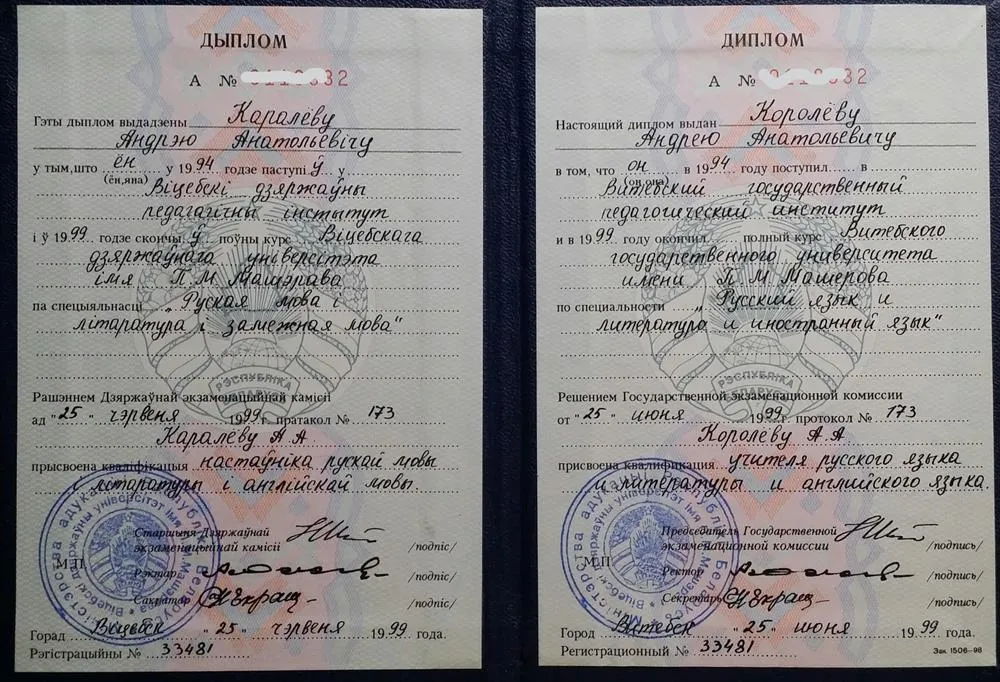 ДЫПЛОМ
А №
Гэты дыплом выдадзены Каралёву
Андрэю Анатольевічу
у тым, што ён у 1994 годзе паступіў у
(ён, яна)
Віцебскі дзяржаўны
педагагічны інстытут
і ў 1999 годзе скончыў поўны курс Віцебскага
дзяржаўнага універсітэта
імя П.М. Машэрава
па спецыяльнасці „Руская мова і
літаратура і замежная мова"
РЭСПУБЛІКА
БЕЛАРУСЬ
Рашэннем Дзяржаўнай экзаменацыйнай камісіі
ад "25" чэрвеня 1999 г. пратакол № 173
Каралёву А А
прысвоена кваліфікацыя настаўніка рускай мовы
і літаратуры і англійскай мовы.
Старшыня Дзяржаўнай
экзаменацыйнай камісіі /подпіс/
М.П.
Рэктар /подпіс/
Сакратар /подпіс/
Горад Віцебск "25" чэрвеня 1999 года.
Рэгістрацыйны № 33481
ДИПЛОМ
А №
Настоящий диплом выдан Королёву
Андрею Анатольевичу
в том, что он в 1994 году поступил в
Витебский государственный
педагогический институт
и в 1999 году окончил полный курс Витебского
государственного университета
имени П.М. Машерова
по специальности „Русский язык и
литература и иностранный язык"
РЭСПУБЛІКА
БЕЛАРУСЬ
Решением Государственной экзаменационной комиссии
от "25" июня 1999 г. протокол № 173
Королёву А А
присвоена квалификация учителя русского языка
и литературы и английского языка.
Председатель Государственной
экзаменационной комиссии /подпись/
М.П.
Ректор /подпись/
Секретарь /подпись/
Город Витебск "25" июня 1999 года.
Регистрационный № 33481
Зак. 1506—98